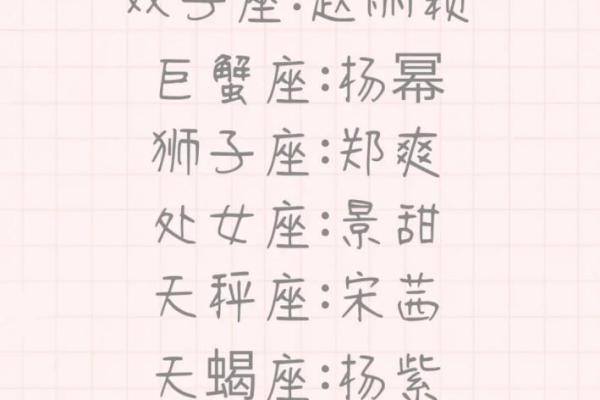 双子座:赵丽颖
巨蟹座:杨幂
狮子座:郑爽
处女座:景甜
天秤座:宋茜
天蝎座:杨紫